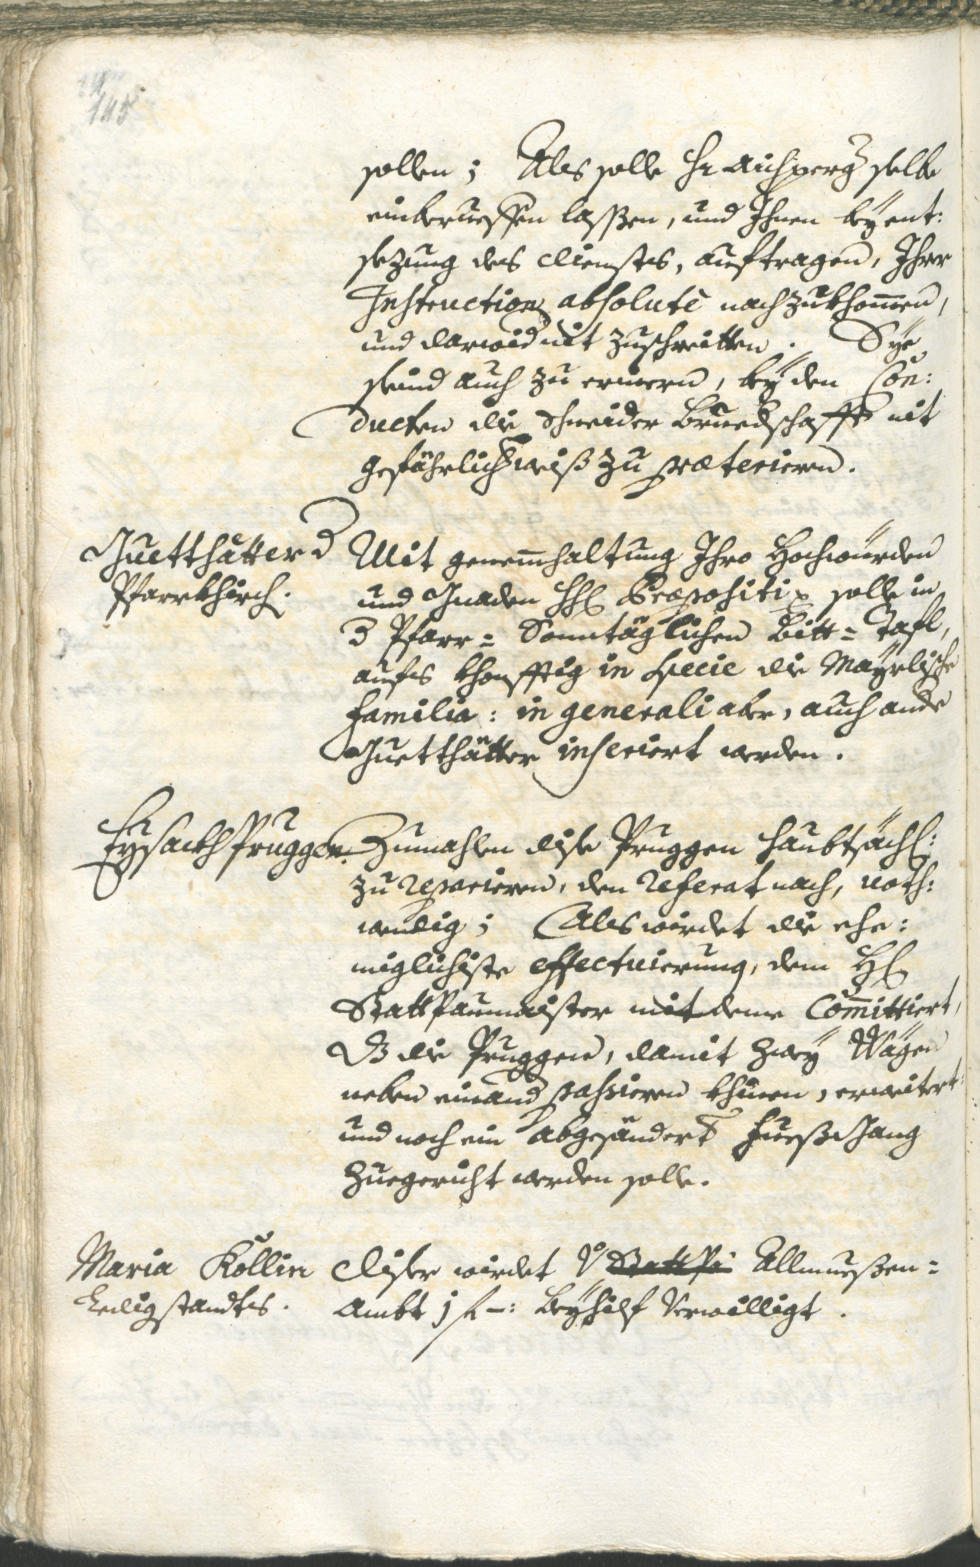 145
sollen; Als solle Hr Aichperg selbe
einberueffen lassen, und Ihnen bey ent:
sezung des diensts, auftragen, Ihrer
Instruction absolutè nachzukhomen,
und darwid nit zuschreitten. Sye
seind auch zu erinern, bey den Con:
ducten die Schneider Bruedschafft nit
gefährlich weiß zu præterieren.
Guettthätter d
Pfarrkhirch.
Mit genemhaltung Ihro Hochwürden
und Gnaden HE Præpositi p solle in
d Pfarr= Sonntäglichen Bitt= Tafl,
aufs khonfftig in specie die Mayrlische
familia: in generali aber, auch ande
Guetthätter inseriert werden.
Eysackh Pruggen.
Zumahlen dise Pruggen haubtsächl:
zu reparieren, den referat nach, noth:
wendig; Als wirdet die ehe:
miglichiste effectuierung, dem HE
Statt Paumaister mit deme Committiert,
dz die Pruggen, damit zwey Wägen
neben einand passieren khünen, erweitert
und noch ein abgesändert fuessGang
zuegericht werden solle.
Maria Köllin
Ledigstandts.
Diser wirdet v Statt Pi Allmuessen=
Ambt 1 f –: Beyhilf Verwilligt.